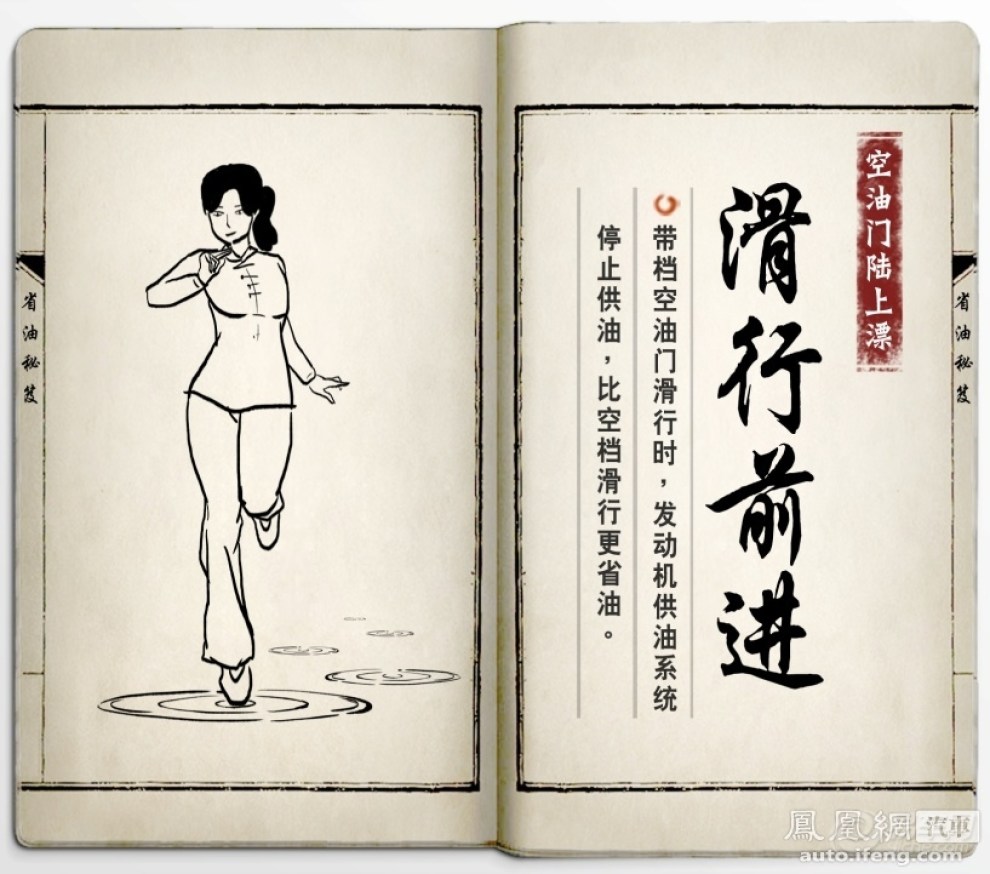 空油门陆上漂
滑行前进
带档空油门滑行时，发动机供油系统
停止供油，比空档滑行更省油。
省油秘笈
省油秘笈
鳳凰網汽車
auto.ifeng.com